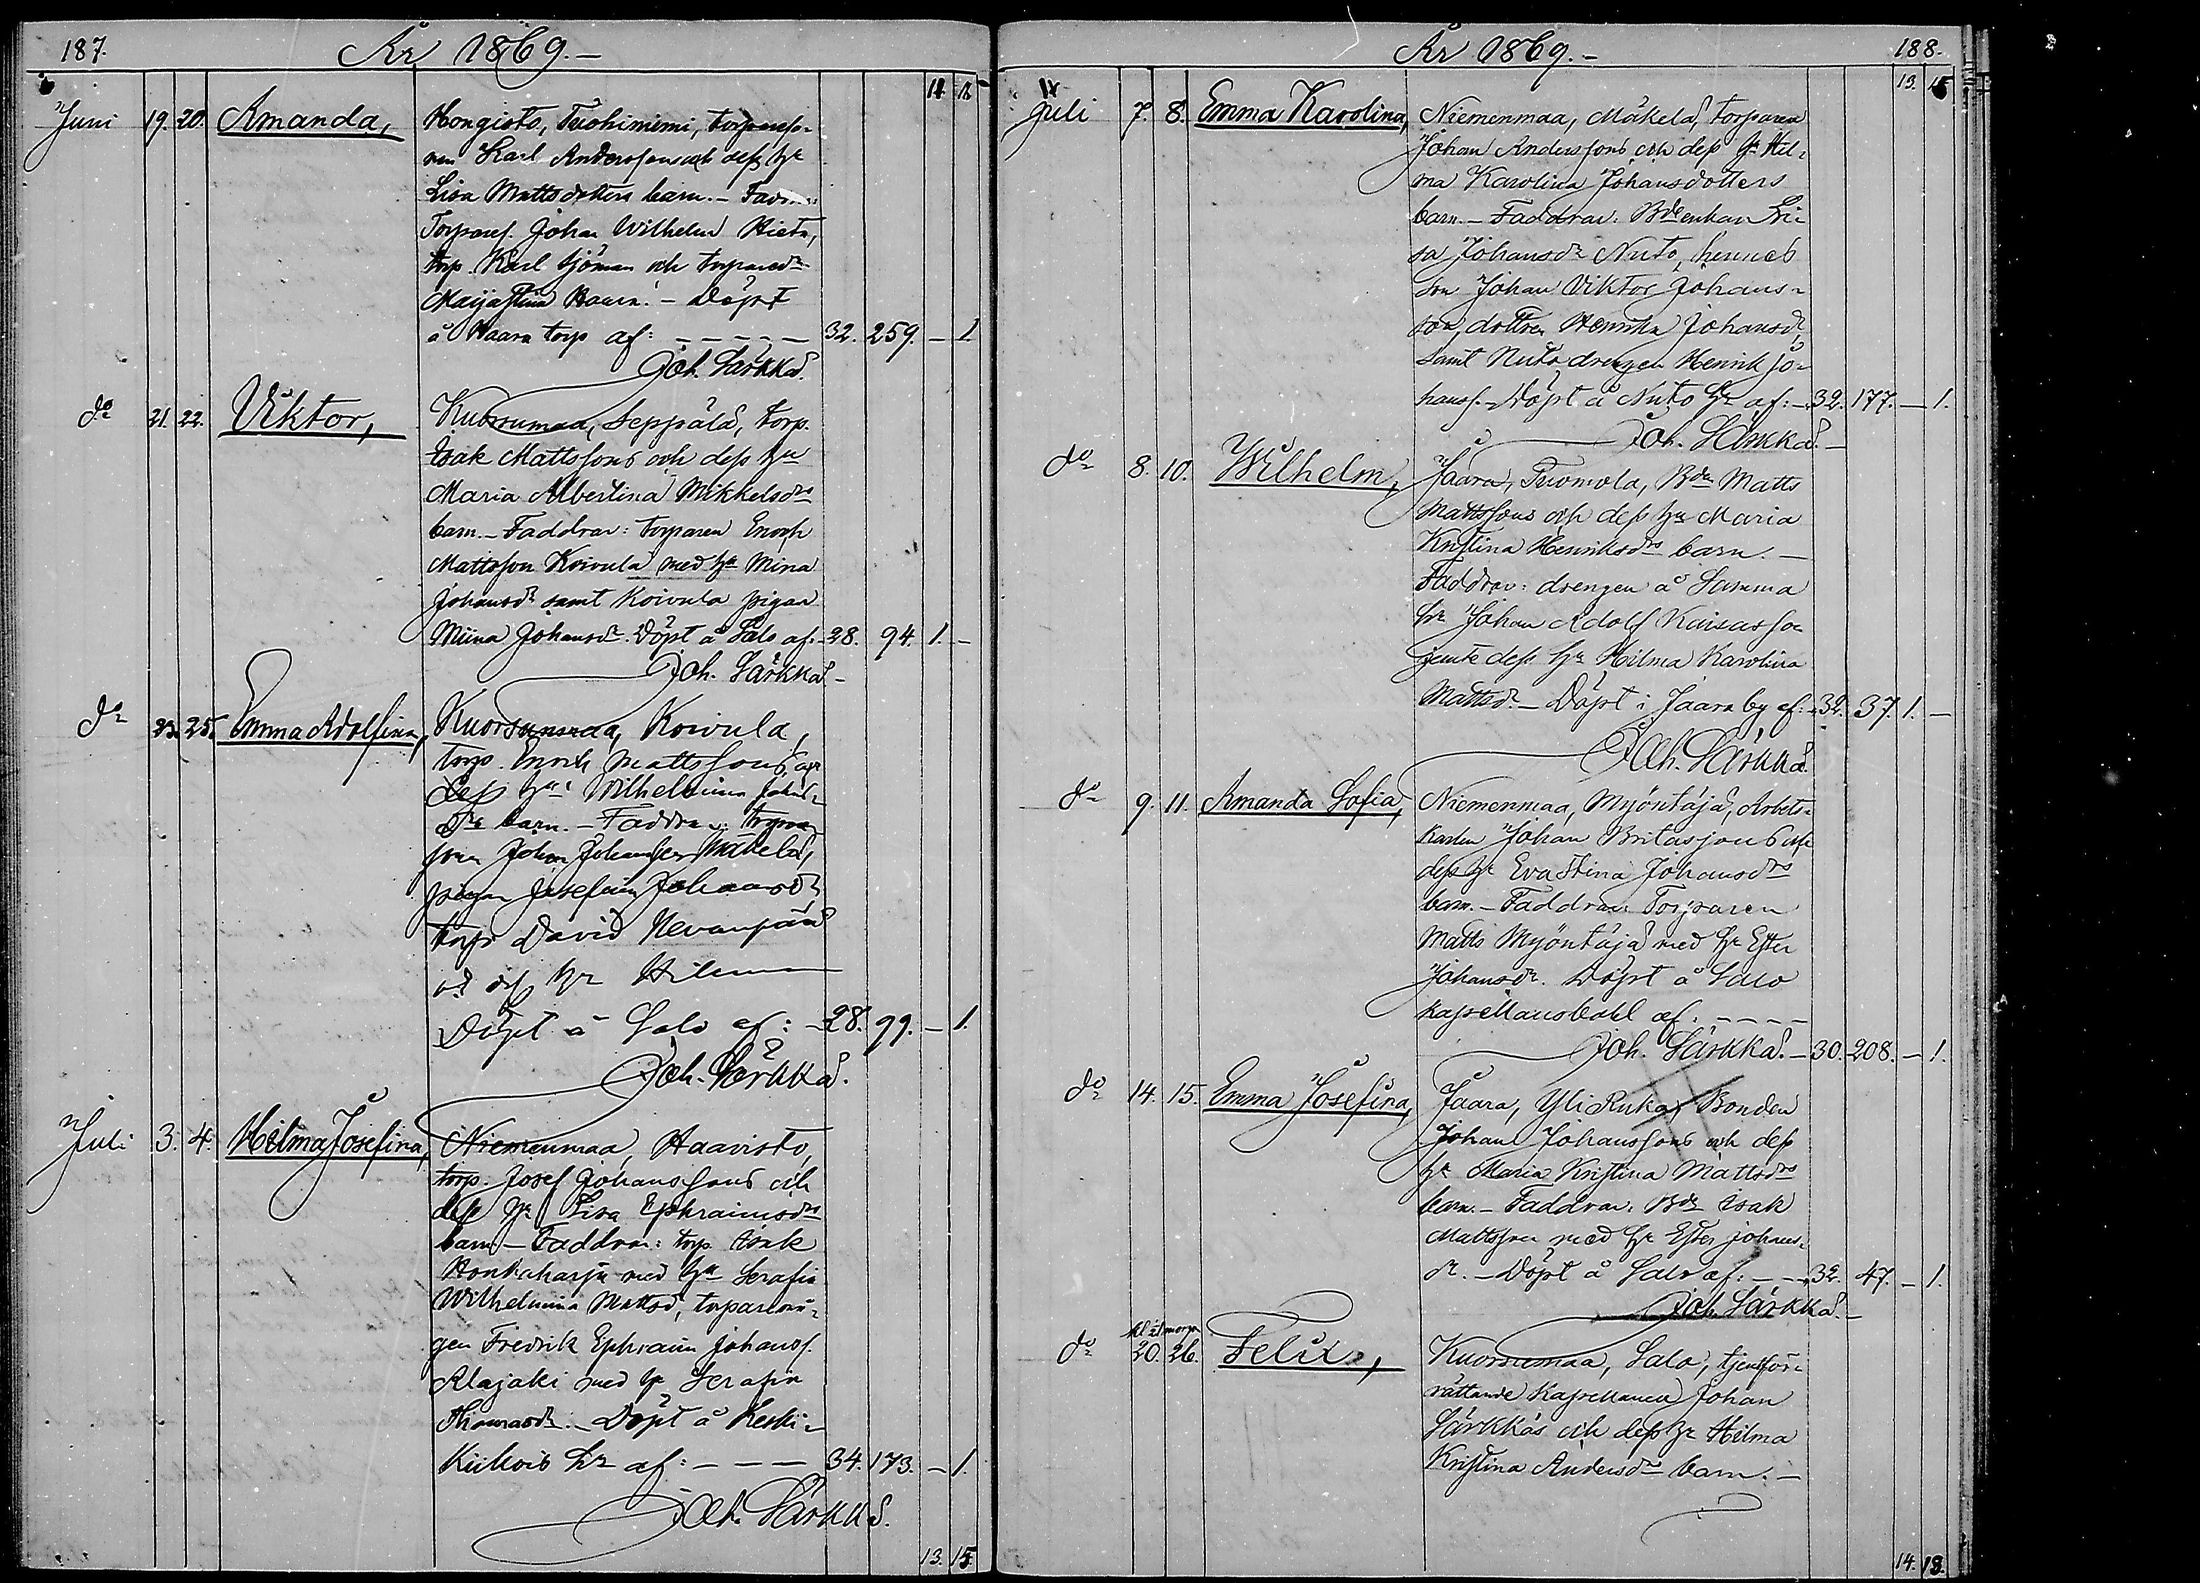 187.
År 1869.-
11 12
Juni 19. 20. Amanda,
Hongisto, Tuohiniemi, torpareso-
nen Karl Anderssons och dess hu
Lisa Mattsdotters barn. - Faddrar:
Torparef. Johan Wilhelm Hieta,
torp. Karl Sjöman och torpared:r
Maija Stina Haara. - Döpt
å Haara torp af: - - - - - 32. 259. - 1.
Joh. Särkkä.
d:o 21. 22. Viktor,
Kuorsumaa, Seppälä, torp.
Isak Mattssons och dess hu
Maria Albertina Mikkelsd:rs
barn. - Faddrar: torparen Enoch
Mattsson Koivula med hu Mina
Johansd:r samt Koivula pigan
Miina Johansd:r. Döpt å Salo af: - 28. 94. 1. -
Joh. Särkkä -
d:o 23. 25. Emma Adolfina,
Kuorsumaa, Koivula,
torp. Enoch Mattssons och
dess hu Wilhelmina Johans-
d:rs barn. - Faddrar: torpare
sonen Johan Johansson Mäkelä,
pigan Josefina Johansd:r
torp David Nevanpää
o. dess hu Hilma
Döpt å Salo af: - 28. 99. - 1.
Joh. Särkkä.
Juli 3. 4. Hilma Josefina,
Niemenmaa, Haavisto,
torp. Josef Johanssons och
dess hu Lisa Ephraimsd:rs
barn - Faddrar: torp. Isak
Honkaharju med hu Serafia
Wilhelmina Mattsd, torparedrän-
gen Fredrik Ephraim Johanss.
Alajoki med hu Serafia
Thomasd:r. - Döpt å Keski-
Kiikois hn af: - - - 34. 173. - 1.
Joh. Särkkä.
13. 15.
År 1869.-
188.
13. 15
Juli 7. 8. Emma Karolina,
Niemenmaa, Mäkelä, torparen
Johan Anderssons och dess hu Hil-
ma Karolina Johansdotters
barn. - Faddrar: Bdeenkan Li-
sa Johansd:r Nuto, hennes
son Johan Viktor Johans-
son, dottren Henrika Johansd:r,
samt Nuto drengen Henrik Jo-
hanss. - Döpt å Nuto hn af: - 32. 177. - 1.
Joh. Särkkä. -
d:o 8. 10. Wilhelm,
Jaara, Tuomola, Bden Matts
Mattssons och dess hu Maria
Kristina Henriksd:rs barn. -
Faddrar: drengen å Samma
hn Johan Adolf Kaisasson
jemte dess hu Hilma Karolina
Mattsd:r - Döpt i Jaara by af: - 32. 37. 1. -
Joh. Särkkä.
d:o 9. 11. Amanda Sofia,
Niemenmaa, Myöntäjä, Arbets-
karlen Johan Britassons och
dess hu Eva Stina Johansd:rs
barn. - Faddrar: Torparen
Matts Myöntäjä med hu Ester
Johansd:r. Döpt å Salo
kapellansbohl af: - - - -
Joh. Särkkä. - 30. 208. - 1.
d:o 14. 15. Emma Josefina,
Jaara, Yli Ruka, Bonden
Johan Johanssons och dess
hu Maria Kristina Mattsd:rs
barn. - Faddrar: Bden Isak
Mattsson med hu Ester Johans-
d:r. - Döpt å Salo af: - - 32. 47. - 1.
Joh. Särkkä. -
kl 2 morgn
d:o 20. 26. Felix,
Kuorsumaa, Salo, tjenstför-
rättande Kapellanen Johan
Särkkäs och dess hu Hilma
Kristina Andersd:rs barn. -
14. 18.